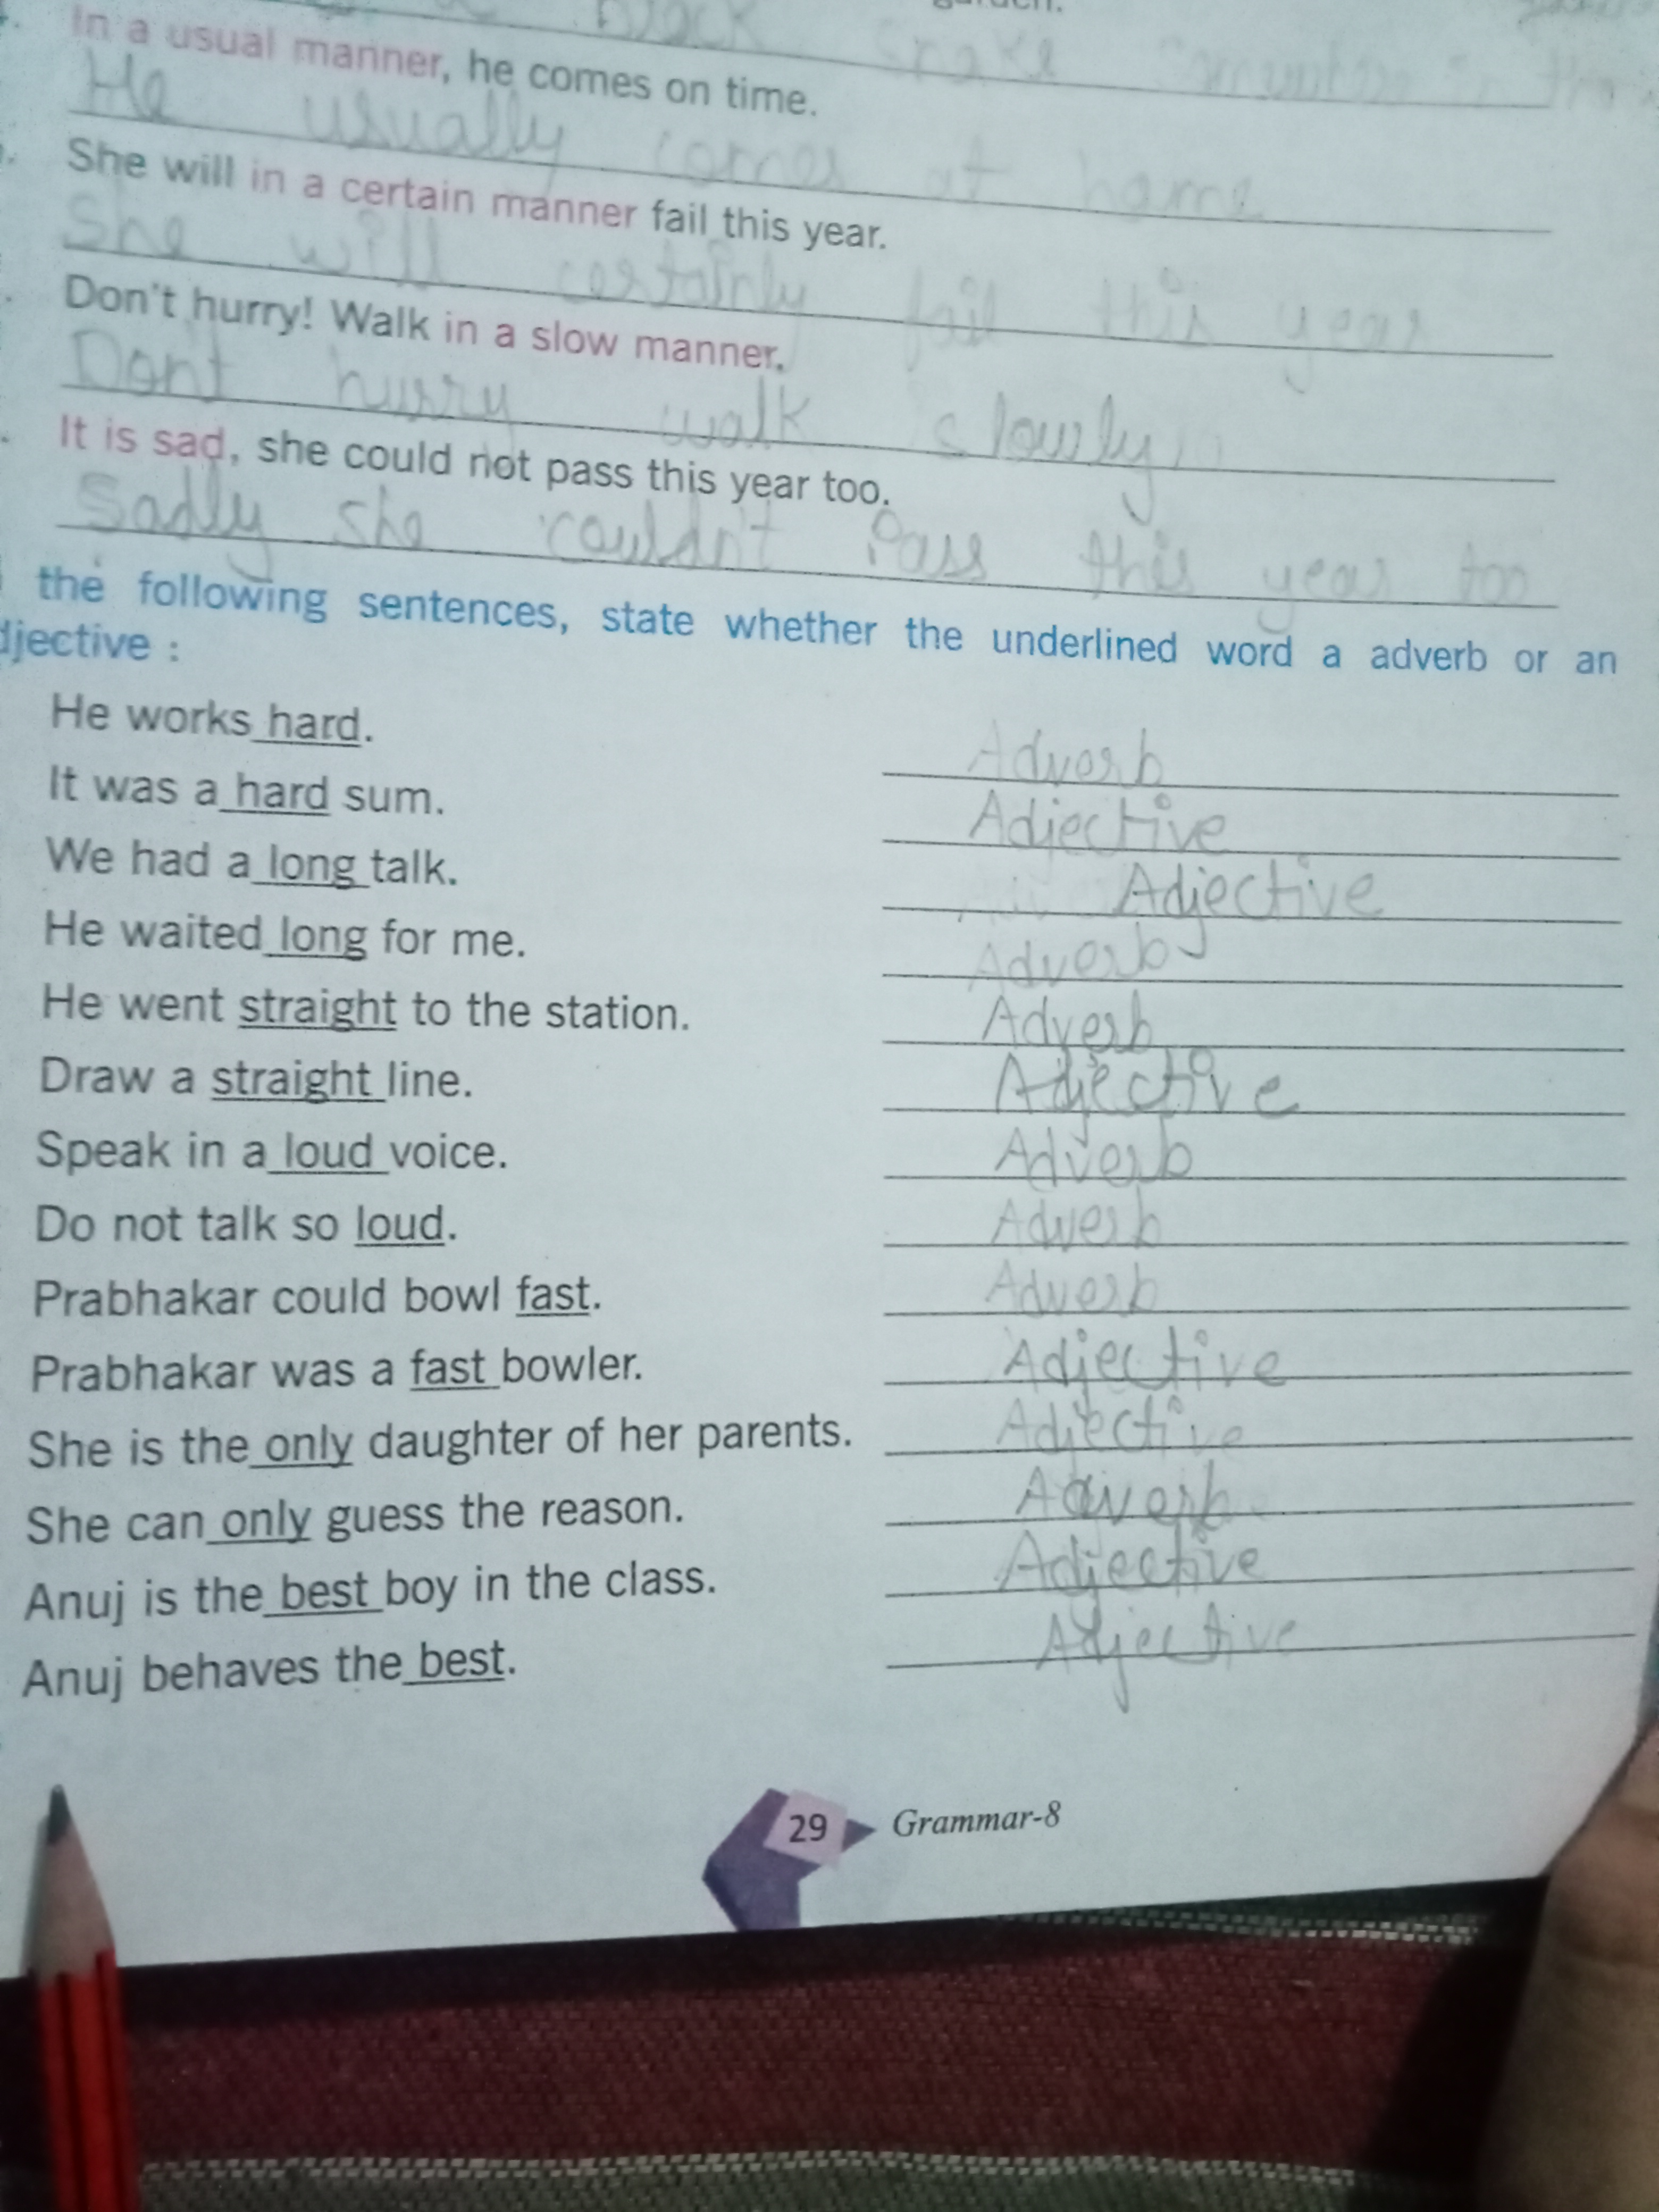 garden.
Black snake in the
In a usual manner, he comes on time.
He usually comes at home
She will in a certain manner fail this year.
She will certainly fail this year
Don't hurry! Walk in a slow manner.
Don't hurry walk slowly
It is sad, she could not pass this year too.
Sadly she couldn't Pass this year too
the following sentences, state whether the underlined word a adverb or an
djective :
He works hard. Adverb
It was a hard sum. Adjective
We had a long talk. Adjective
He waited long for me. Adverb
He went straight to the station. Adverb
Draw a straight line. Adjective
Speak in a loud voice. Adverb
Do not talk so loud. Adverb
Prabhakar could bowl fast. Adverb
Prabhakar was a fast bowler. Adjective
She is the only daughter of her parents. Adjective
She can only guess the reason. Adverb
Anuj is the best boy in the class. Adjective
Anuj behaves the best. Adjective
29 Grammar-8